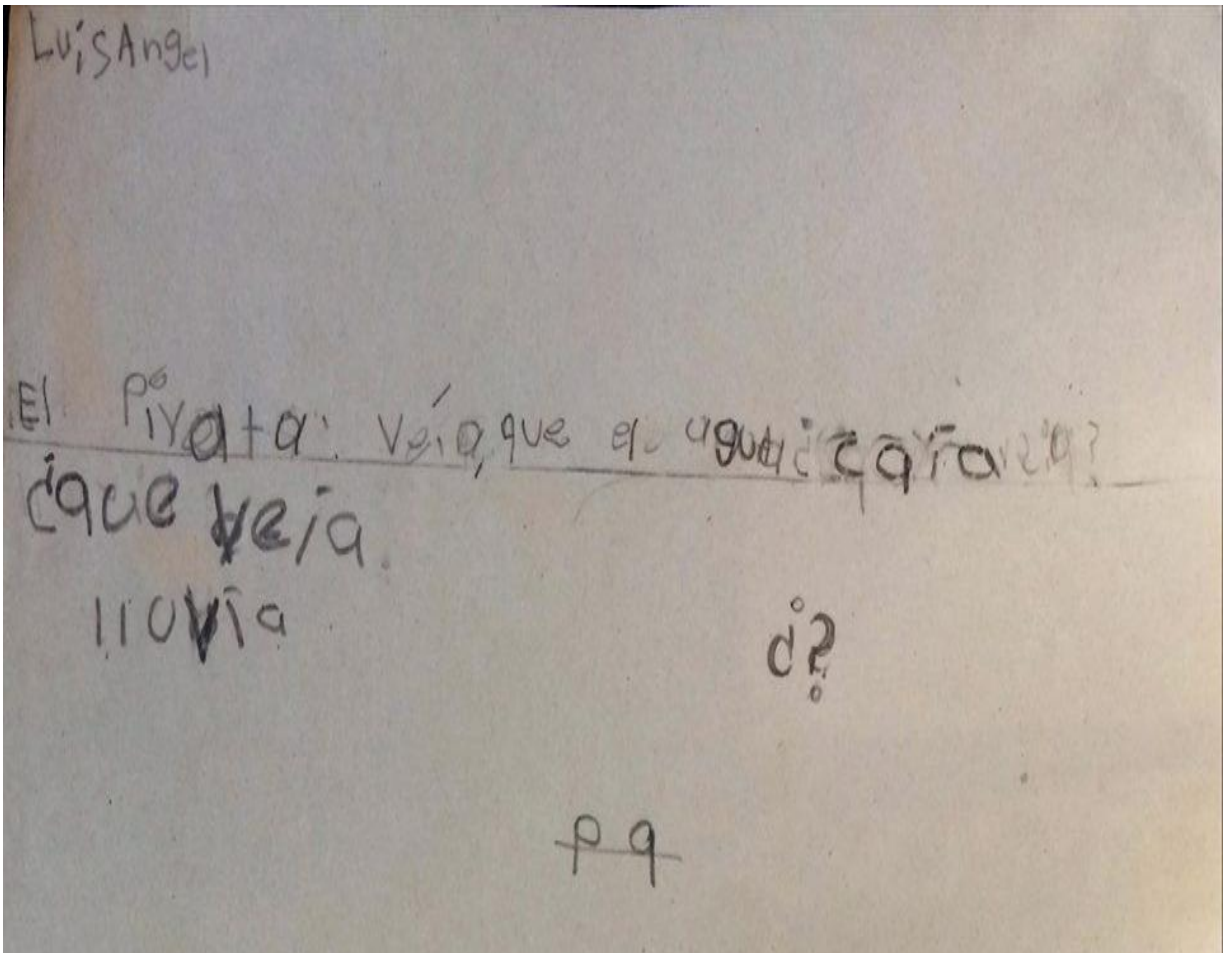 Luis Angel
El Pirata veía, que el agua ¿caía
¿que veía.
llovía
¿?
p q